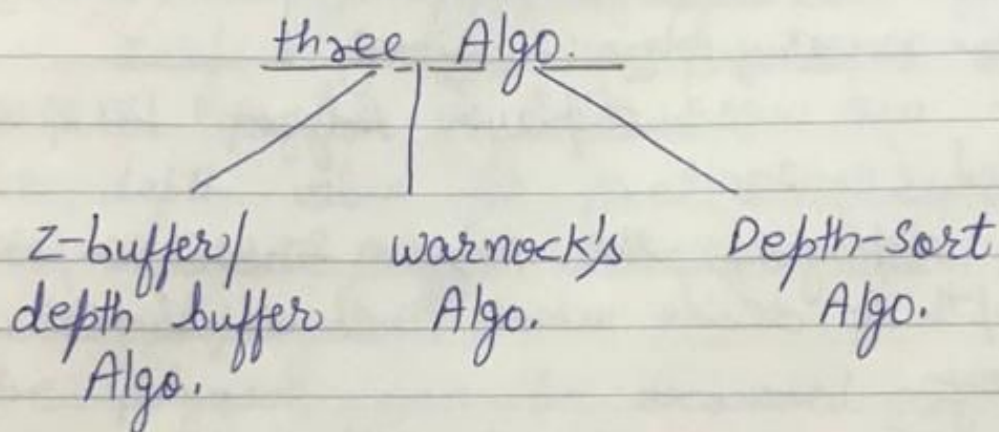 three Algo.
Z-buffer/
depth buffer
Algo.
warnock's
Algo.
Depth-sort
Algo.